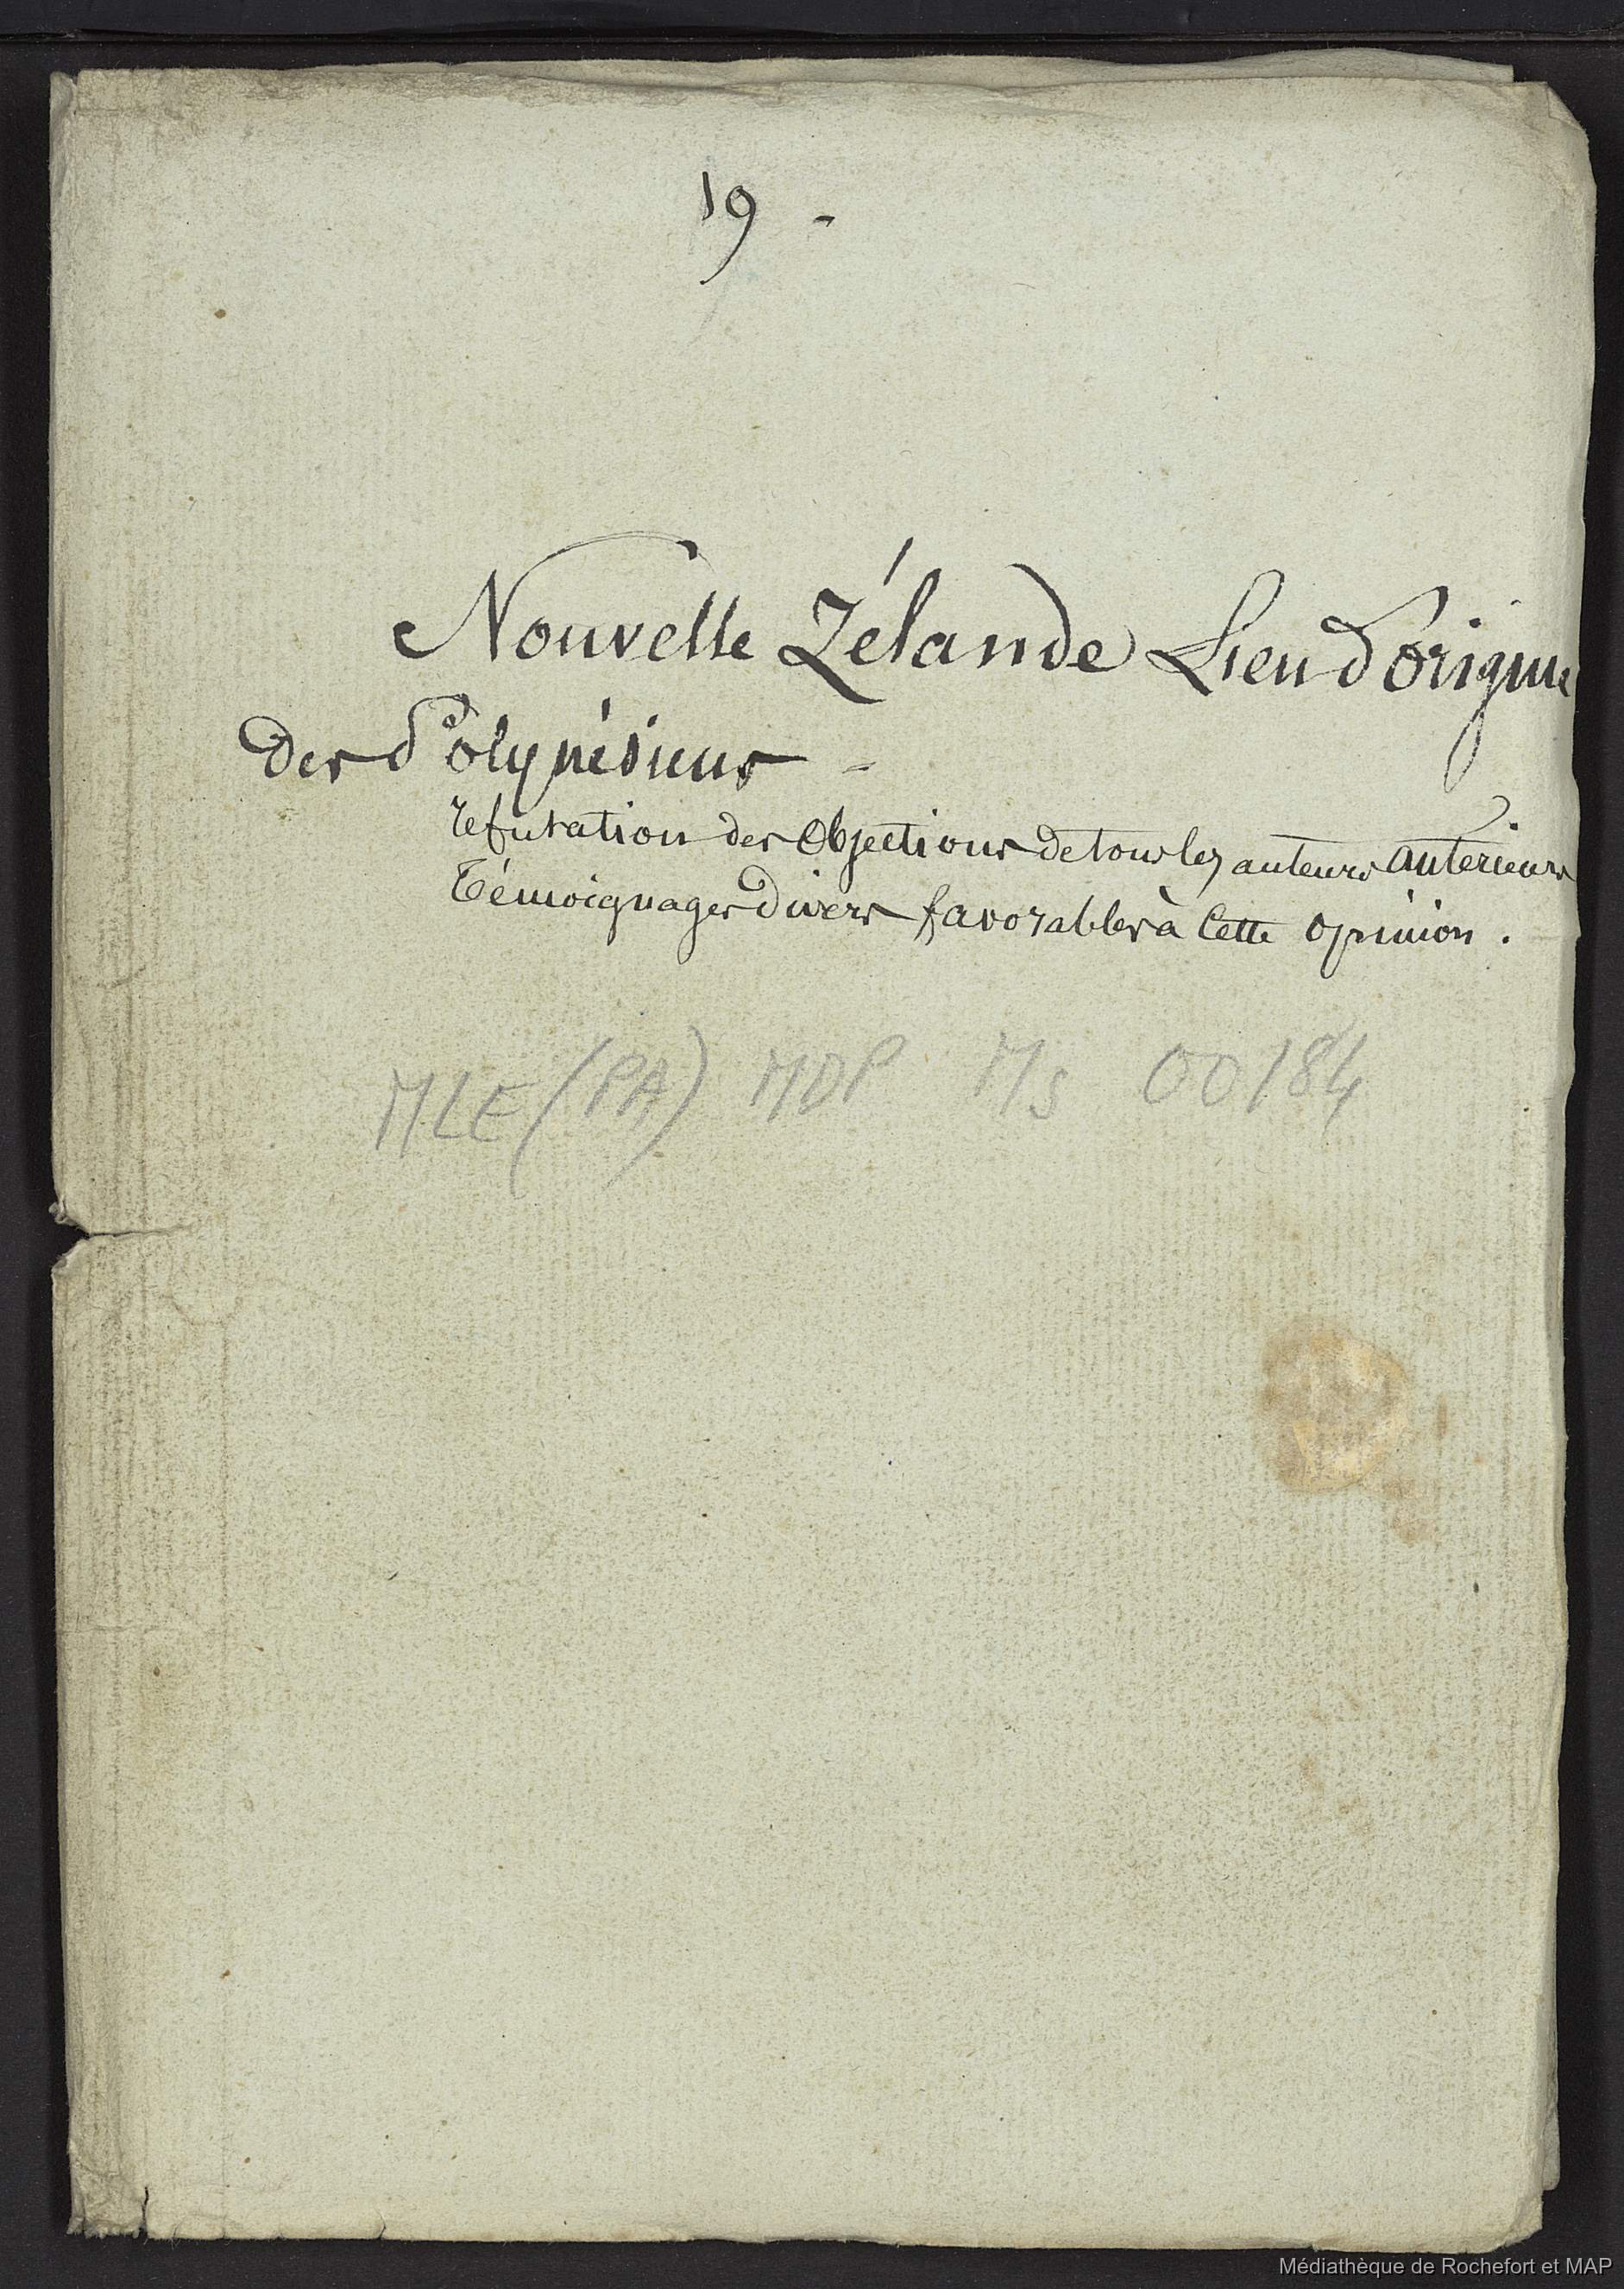 19 -
Nouvelle Zélande Lieu d'origine
des Polynésiens -
refutation des objections de tous les auteurs anterieurs
Témoignages divers favorables à cette opinion.
MLE (PA) MDP Ms 00184
Médiathèque de Rochefort et MAP